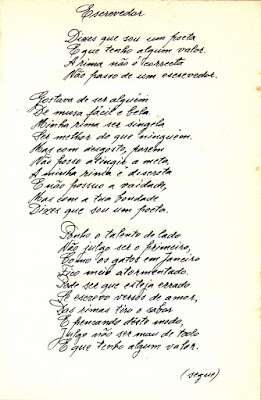 Escrevedor
Dizes que sou um poeta
E que tenho algum valor.
A rima não é correcta
Não passo de um escrevedor.
Gostava de ser alguém
De musa fácil e bela.
Minha rima ser singela
Ser melhor do que ninguém.
Mas com desgosto, porém
Não posso atingir a meta,
A minha rima é discreta
E não possuo a vaidade,
Mas com a tua bondade
Dizes que sou um poeta.
Tenho o talento de lado
Não julgo ser o primeiro,
Como os gatos em Janeiro
Fico meio atormentado.
Pode ser que esteja errado
Se escrevo versos de amor,
Das rimas tiro o sabor
E pensando dêste modo,
Julgo não ser mau de todo
E que tenho algum valor.
(segue)